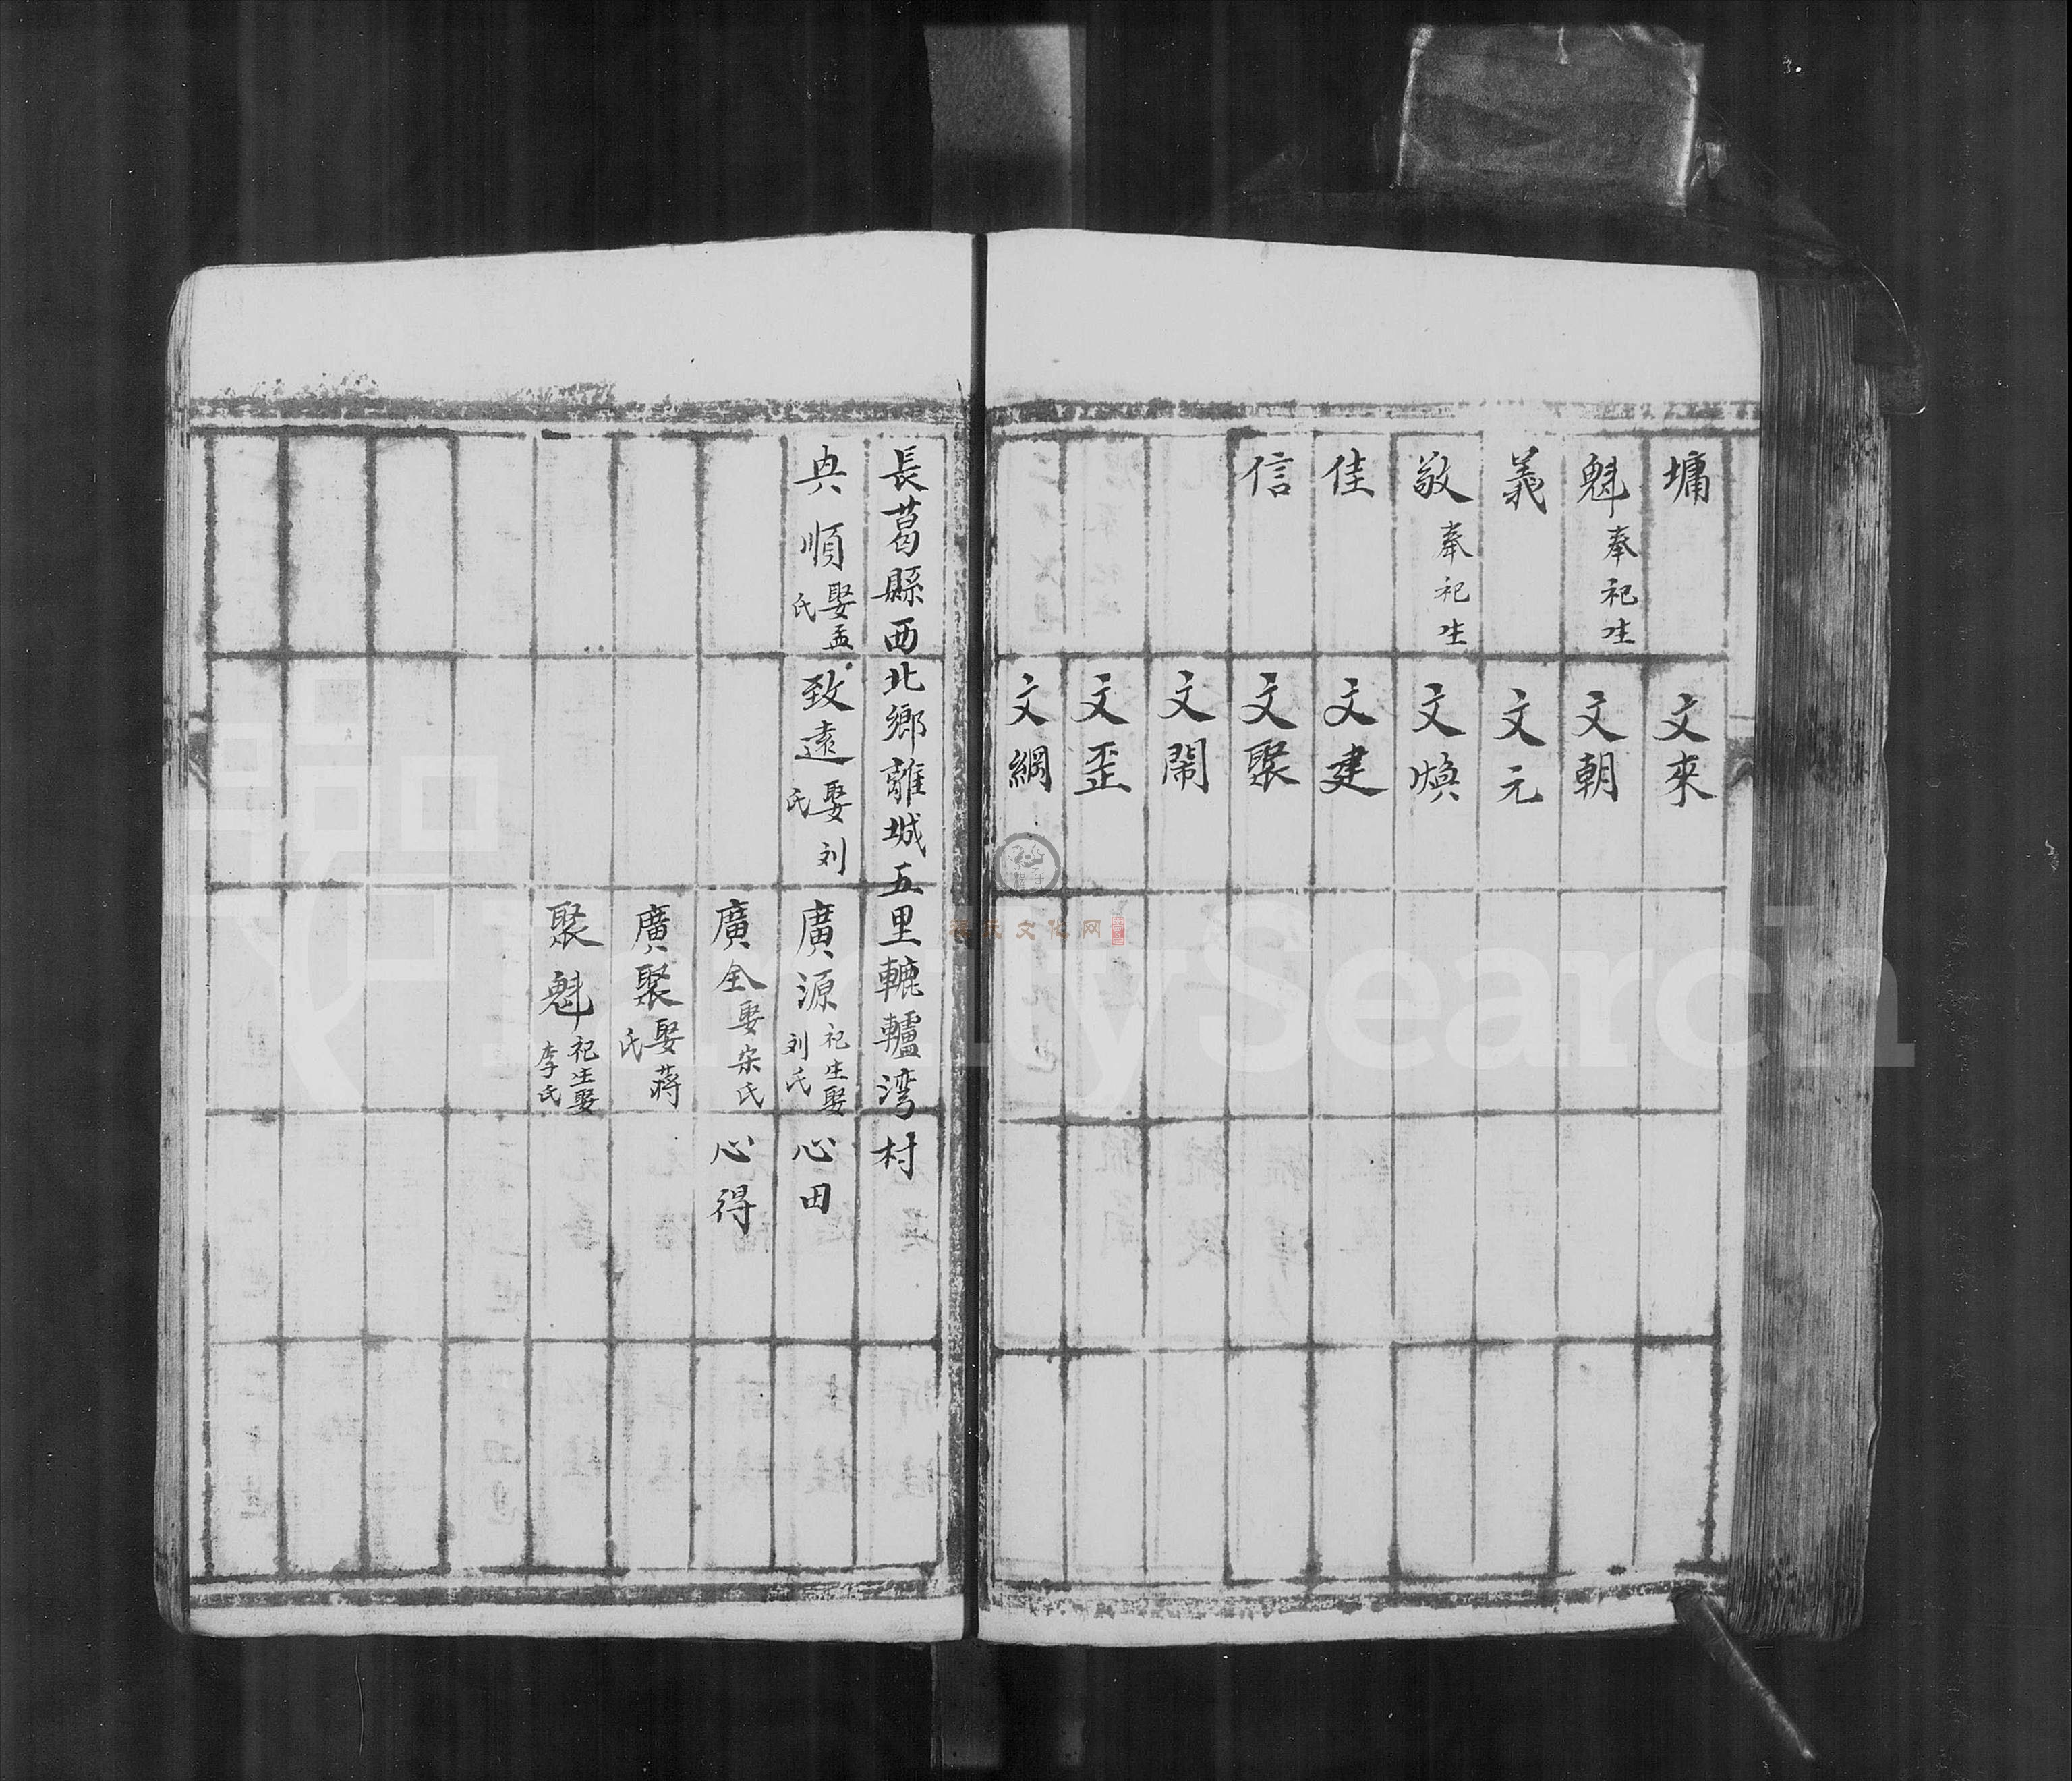 墉 文來
魁 奉祀生 文朝
義 文元
敬 奉祀生 文煥
佳 文建
信 文聚
文閙
文歪
文綱
長葛縣西北鄉離城五里轆轤湾村
典順 娶孟氏 致遠 娶刘氏 廣源 祀生娶刘氏 心田
廣全 娶宋氏 心得
廣聚 娶蔣氏
聚魁 祀生娶李氏
FamilySearch
文化网